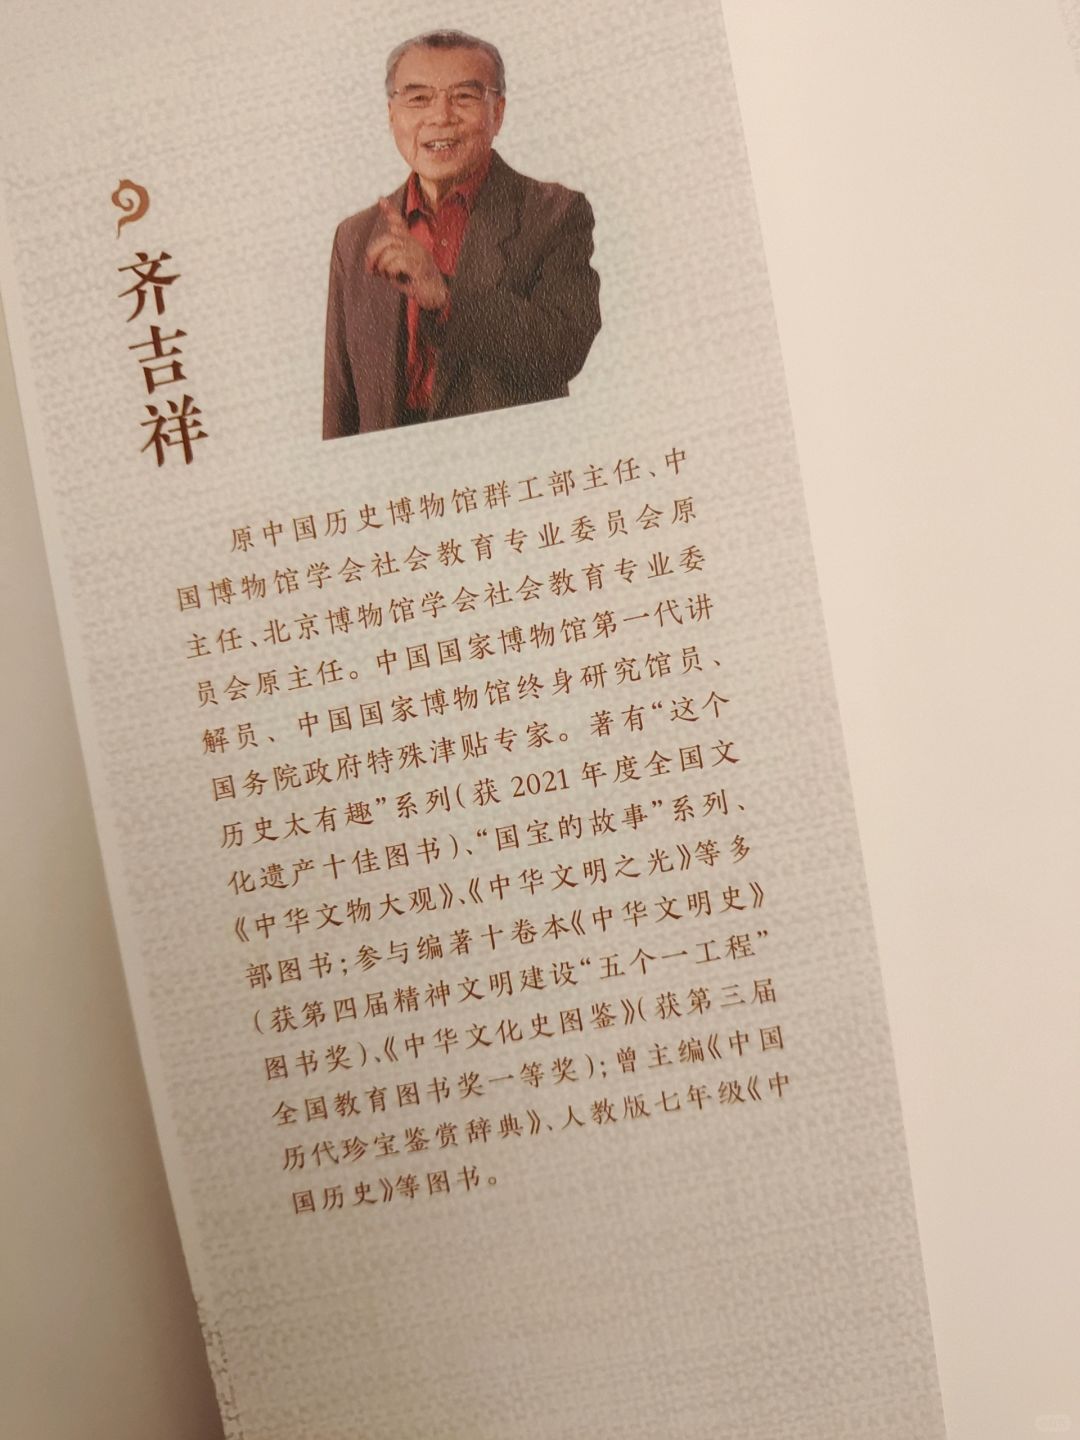 齐吉祥
原中国历史博物馆群工部主任、中
国博物馆学会社会教育专业委员会原
主任、北京博物馆学会社会教育专业委
员会原主任。中国国家博物馆第一代讲
解员、中国国家博物馆终身研究馆员、
国务院政府特殊津贴专家。著有“这个
历史太有趣”系列(获 2021 年度全国文
化遗产十佳图书)、“国宝的故事”系列、
《中华文物大观》、《中华文明之光》等多
部图书;参与编著十卷本《中华文明史》
(获第四届精神文明建设“五个一工程”
图书奖)、《中华文化史图鉴》(获第三届
全国教育图书奖一等奖);曾主编《中国
历代珍宝鉴赏辞典》、人教版七年级《中
国历史》等图书。